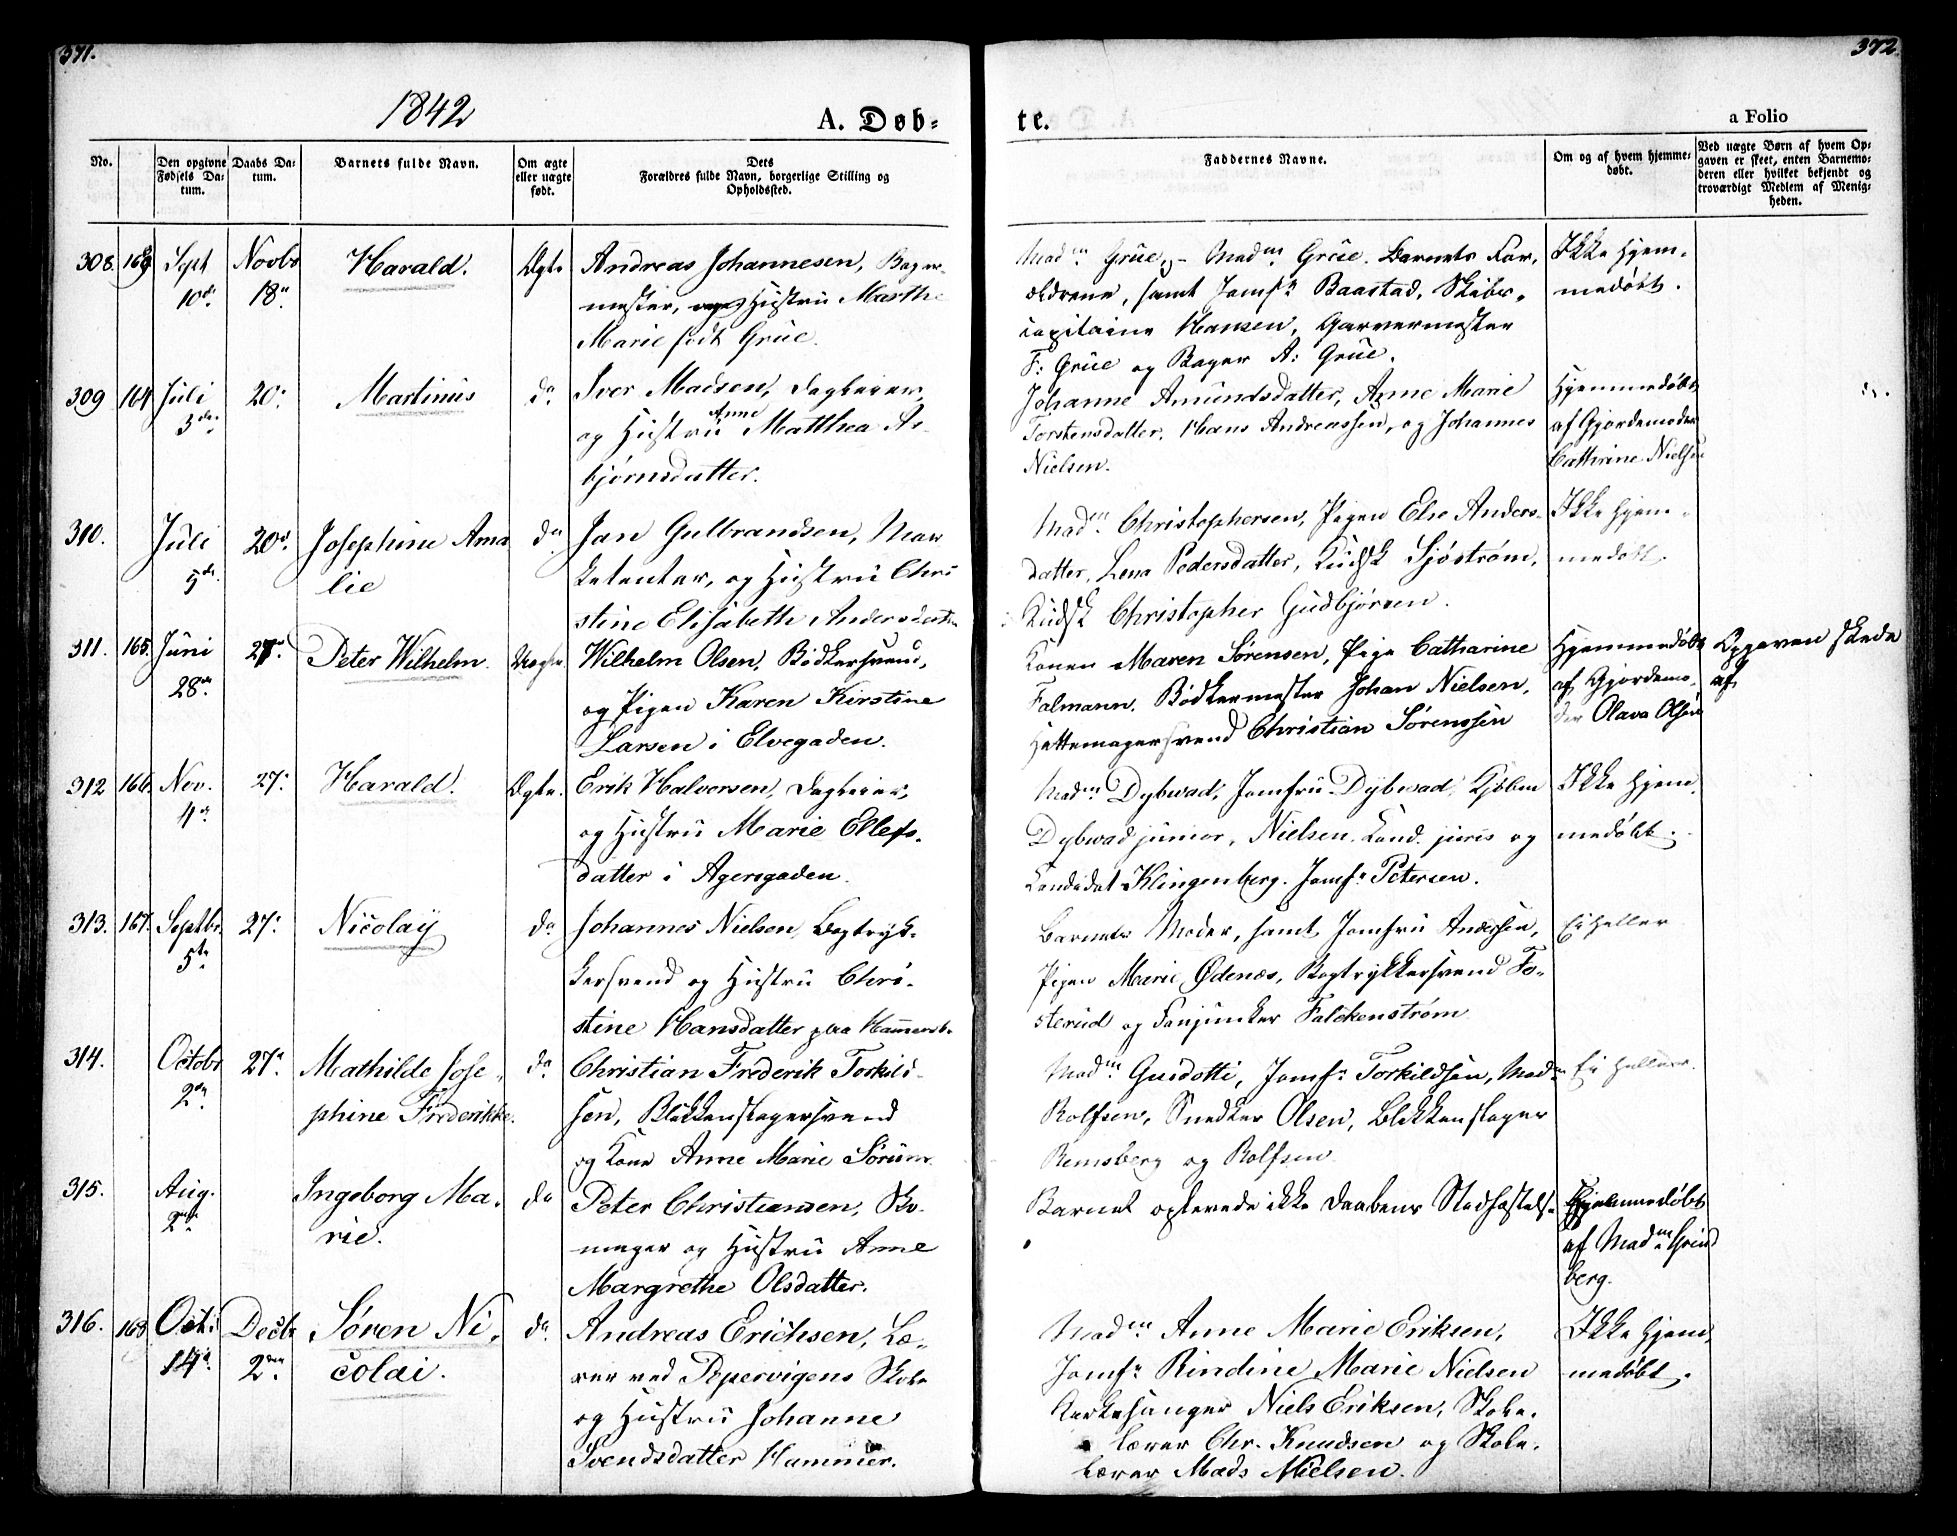 371.
372.
1842
A. Døb-
te.
a Folio
No.
Den opgivne Fødsels Da-tum.
Daabs Da-tum.
Barnets fulde Navn.
Om ægte eller uægte født.
Dets Forældres fulde Navn, borgerlige Stilling og Opholdssted.
Faddernes Navne.
Om og af hvem hjemme-døbt.
Ved uægte Børn af hvem Op-gaven er skeet, enten Barnemo-deren eller hvilket bekjendt og troværdigt Medlem af Menig-heden.
308. 163 Sept 10de Novbr 18n Harald. Ægte
Andreas Johannesen, Bager-
mester, og Hustru Marthe
Marie født Grüe.
Madm Grüe, - Madm Grüe. Barnets For,
ældrene, samt Jomfr Baastad, Skibs-
capitaine Hansen, Garvermester
F: Grüe og Bager A: Grüe.
Ikke hjem-
medøbt.
309 164 Juli 3die 20. Martinus do.
Iver Madsen, Dagleier,
og Hustru Anne Matthea As-
bjørnsdatter.
Johanne Amundsdatter, Anne Marie
Torstensdatter, Hans Andreassen, og Johannes
Nielsen.
Hjemmedøbt
af Gjordemoder
Cathrine Nielsen
310. Juli 5de. 20d. Josephine Ama
lie do
Jan Gulbrandsen, Mar
ketenter, og Hustru Chri
stine Elisabeth Andersdatter
Madm Christophersen, Pigen Else Anders-
datter, Lena Pedersdatter, Kudsk Sjöström,
Kudsk Christopher Gudbjørsen.
Ikke hjem-
medøbt.
311. 165. Juni 28de 27. Peter Wilhelm. Uægte.
Wilhelm Olsen, Bødkersvend,
og Pigen Karen Kirstine
Larsen i Elvegaden.
Konen Maren Sørensen, Pige Catharine
Falmann, Bødkermester Johan Nielsen,
Hattemagersvend Christian Sørenssen
Hjemmedøbt
af Gjordemo-
der Olava Olsen
Opgaven skede
af
312 166. Nov. 4de 27. Harald. Ægte.
Erik Halvorsen, Dagleier,
og Hustru Marie Ellefs-
datter i Agersgaden.
Madm Dybwad, Jomfru Dybwad, Kjøbm
Dybwad junior, Nielsen, Cand. juris og
Candidat Klingenberg. Jomfr Petersen.
Ikke hjem,
medøbt.
313. 167. Septbr. 5te 27. Nicolay do
Johannes Nielsen, Bogtryk-
kersvend og Hustru Chri-
stine Hansdatter paa Hammersb.
Barnets Moder, samt Jomfru Andersen,
Pigen Marie Ødenæs, Bogtrykkersvend Fo-
sterud og Fanjunker Falckenstrøm
Ei heller
314. Octobr 2den 27. Mathilde Jose-
phine Frederikke. do
Christian Frederik Torkild-
sen, Blikkenslagersvend
og Kone Anne Marie Sørum.
Madm Guidotti, Jomfr Torkildsen, Madm
Rolfsen, Snedker Olsen, Blikkenslager
Remsberg og Rolfsen.
Ei heller.
315. Aug. 2den Ingeborg Ma-
rie. do
Peter Christiansen, Sko-
mager og Hustru Anne
Margrethe Olsdatter.
Barnet oplevede ikke Daabens Stadfæstelse
Hjemmedøbt
af Madm
berg.
316. 168 Oct. 14de Decbr 2den Søren Ni-
colai. do
Andreas Erichsen, Læ-
rer ved Pipervigens Skole
og Hustru Johanne
Svendsdatter Hammer.
Madm Anne Marie Eriksen,
Jomfr Rindine Marie Nielsen
Kirkesanger Niels Eriksen, Skole-
lærer Chr. Knudsen og Skole-
lærer Mads Nielsen.
Ikke hjem,
medøbt.